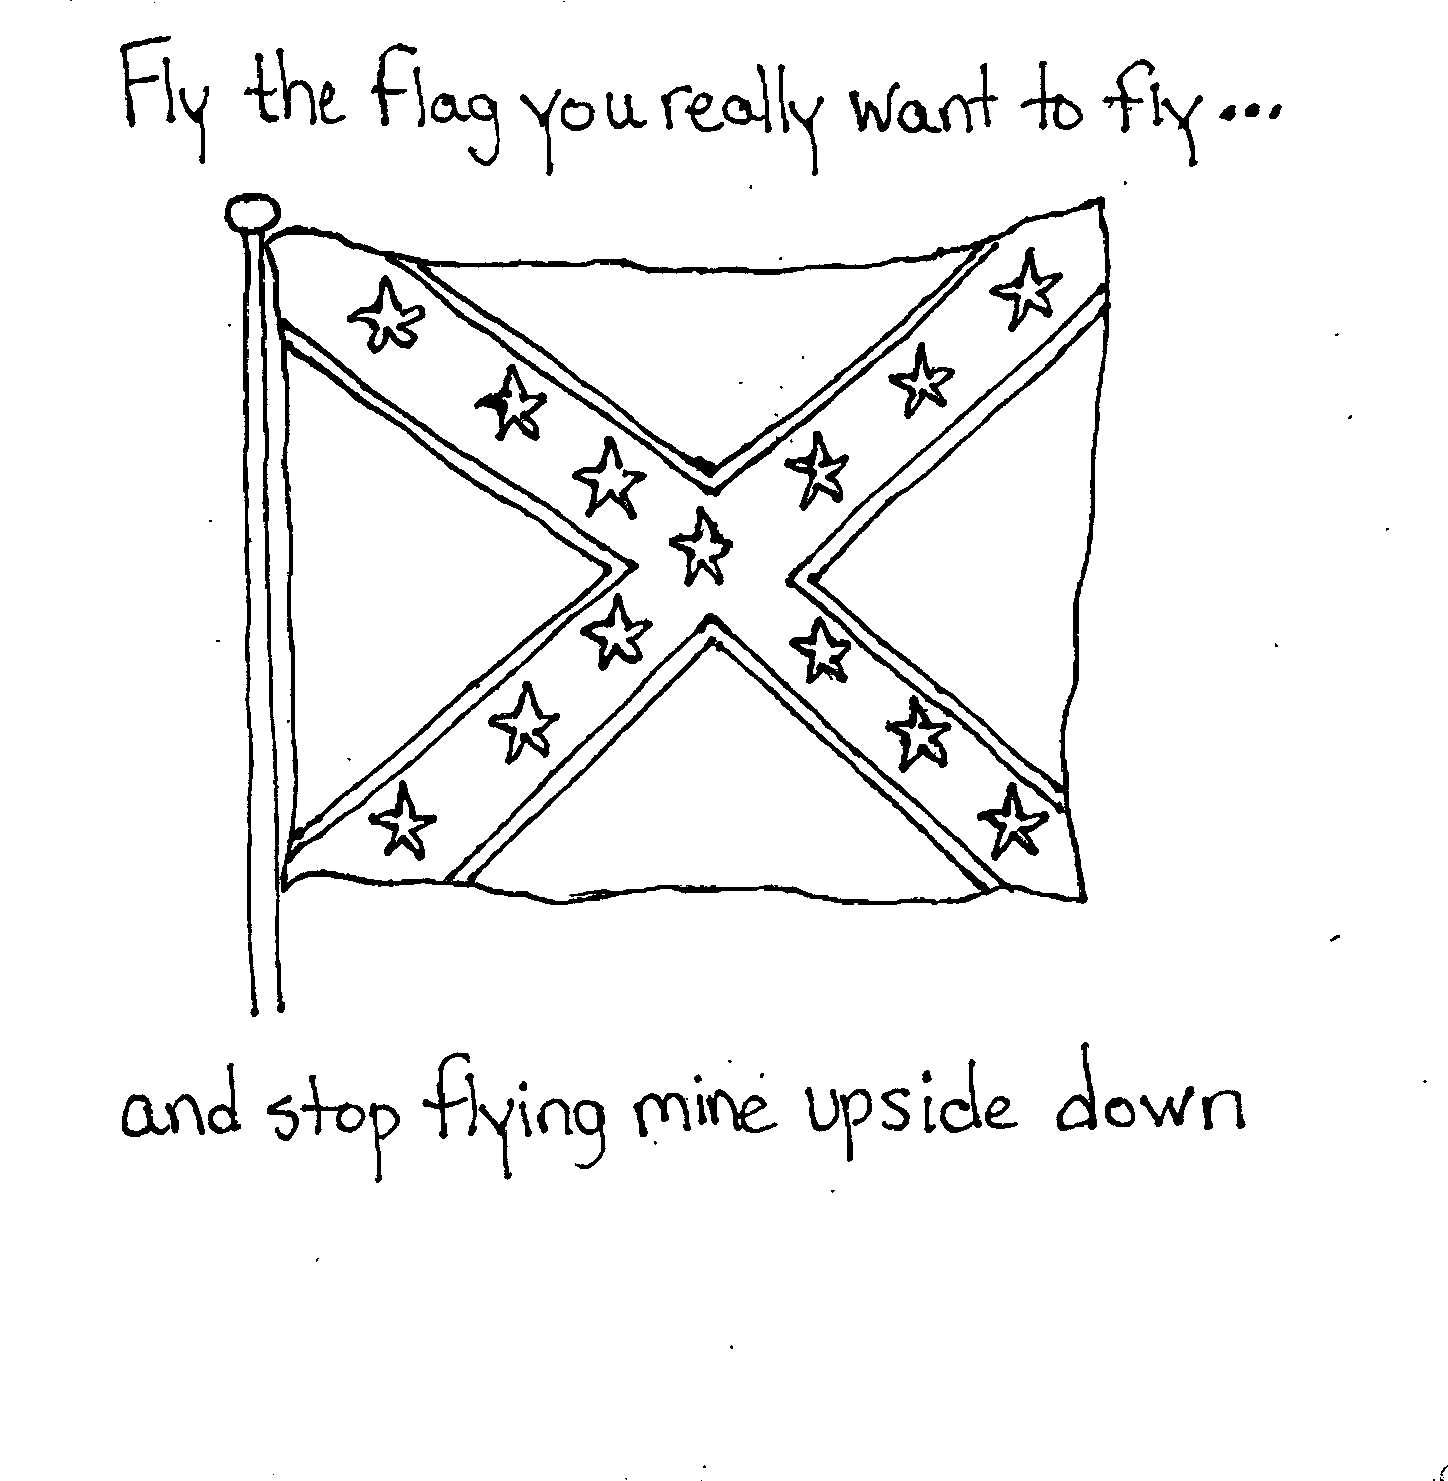 Fly the flag you really want to fly...
and stop flying mine upside down